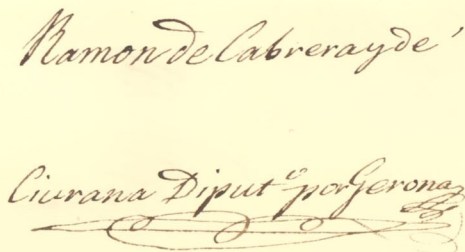 Ramon de Cabrera y de
Ciurana Diput.º por Gerona